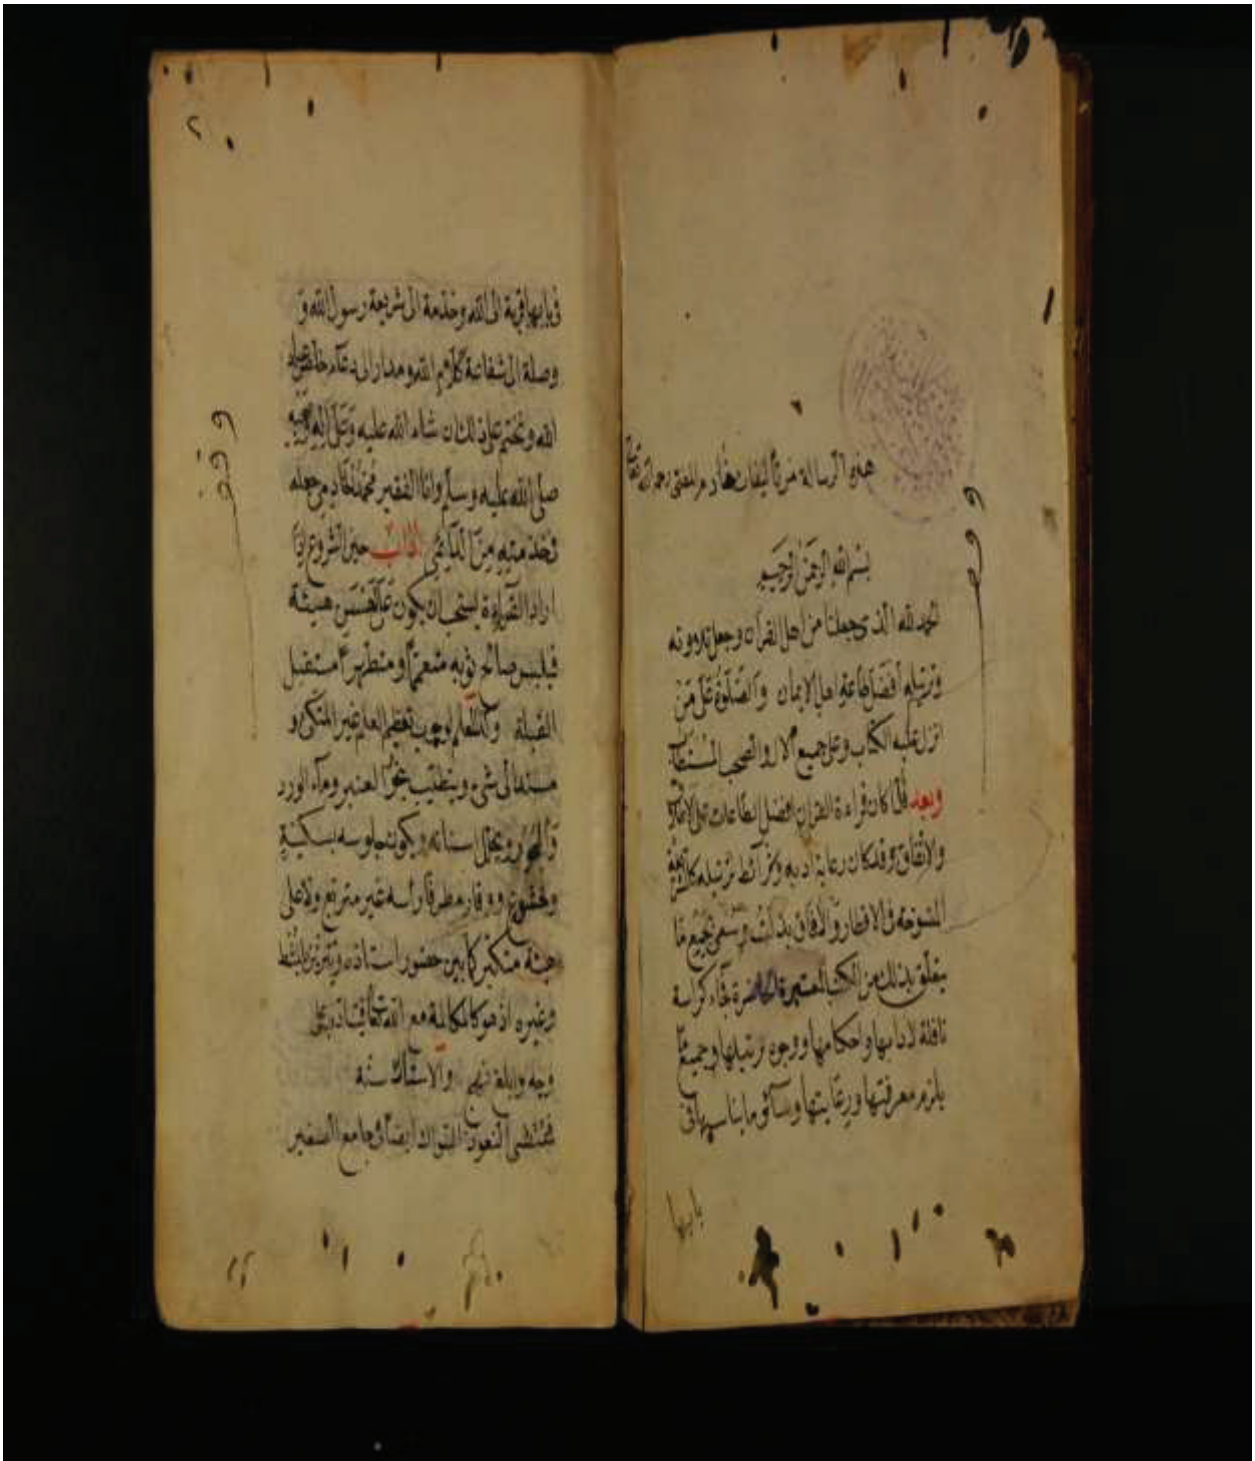 هذه الرسالة من تأليفات خادم المفتي رحمه الله تعالى
وقف
بسم الله الرحمن الرحيم
الحمد لله الذي جعلنا من اهل القرآن وجعل تلاوته
وترتيله أفضل طاعة اهل الايمان والصلوة على من
انزل عليه الكتاب وعلى جميع الال والصحب
وبعد فلما كان قراءة القران افضل الطاعات على
والاتفاق وقد كان رعاية ادبه وشرائط ترتيله
في الاقطار والآفاق بذلت وسعى بجميع ما
يتعلق بذلك من الكتب المعتبرة الحاضرة فجاء كراسة
نافلة لادابها واحكامها ووجوه ترتيلها وجميع ما
يلزم معرفتها ورعايتها وسائر ما يناسبها في
بابها
٢
وقف
في بابها قربة الى الله وخدمة الى شريعة رسول الله و
وصلة الى شفاعة كلام الله ومدار الى دعاء
الله ونختم على ذلك ان شاء الله عليه وعلى اله
صلى الله عليه وسلم وانا الفقير محمد الخادم جعله
في خدمتيه من الدائمي اداب حين الشروع اذا
اراد القراءة يستحب ان يكون على احسن هيئة
فيلبس صالح ثوبه متعمما ومتطهرا مستقبل
القبلة وكذا المعلم لوجوب تعظيم العلم غير المتكئ و
مستندا الى شيء ويتطيب بنحو العنبر وماء الورد
ويخلل اسنانه ويكون جلوسه بسكينة
وخشوع ووقار مطرقا رأسه غير متربع ولا على
هيئة متكبر كما بين حضور استاذه
وغيره اذ هو كالمكالمة مع الله تعالى
وجه وابلغ والاستياك سنة
التعوذ السواك ايضا في جامع الصغير